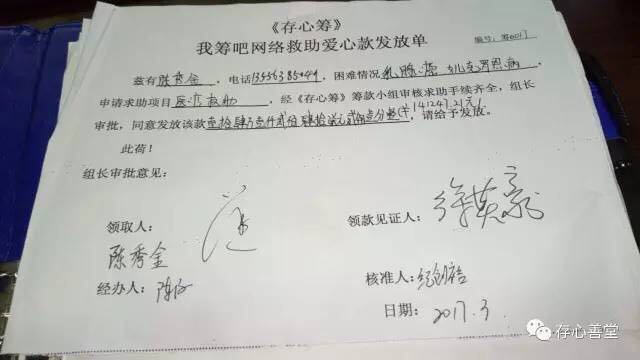 《存心筹》
我筹吧网络救助爱心款发放单
编号:筹0017
兹有陈秀金,电话13556385044,困难情况乳腺癌 女儿克罗恩病
申请求助项目医疗救助,经《存心筹》筹款小组审核求助手续齐全,组长
审批,同意发放该款壹拾肆万壹仟贰佰肆拾柒元贰角壹分整(¥141247.21元),请给予发放。
此荷!
组长审批意见:
领取人:
领款见证人:
陈秀金
经办人:
核准人:
日期:2017.3
存心善堂